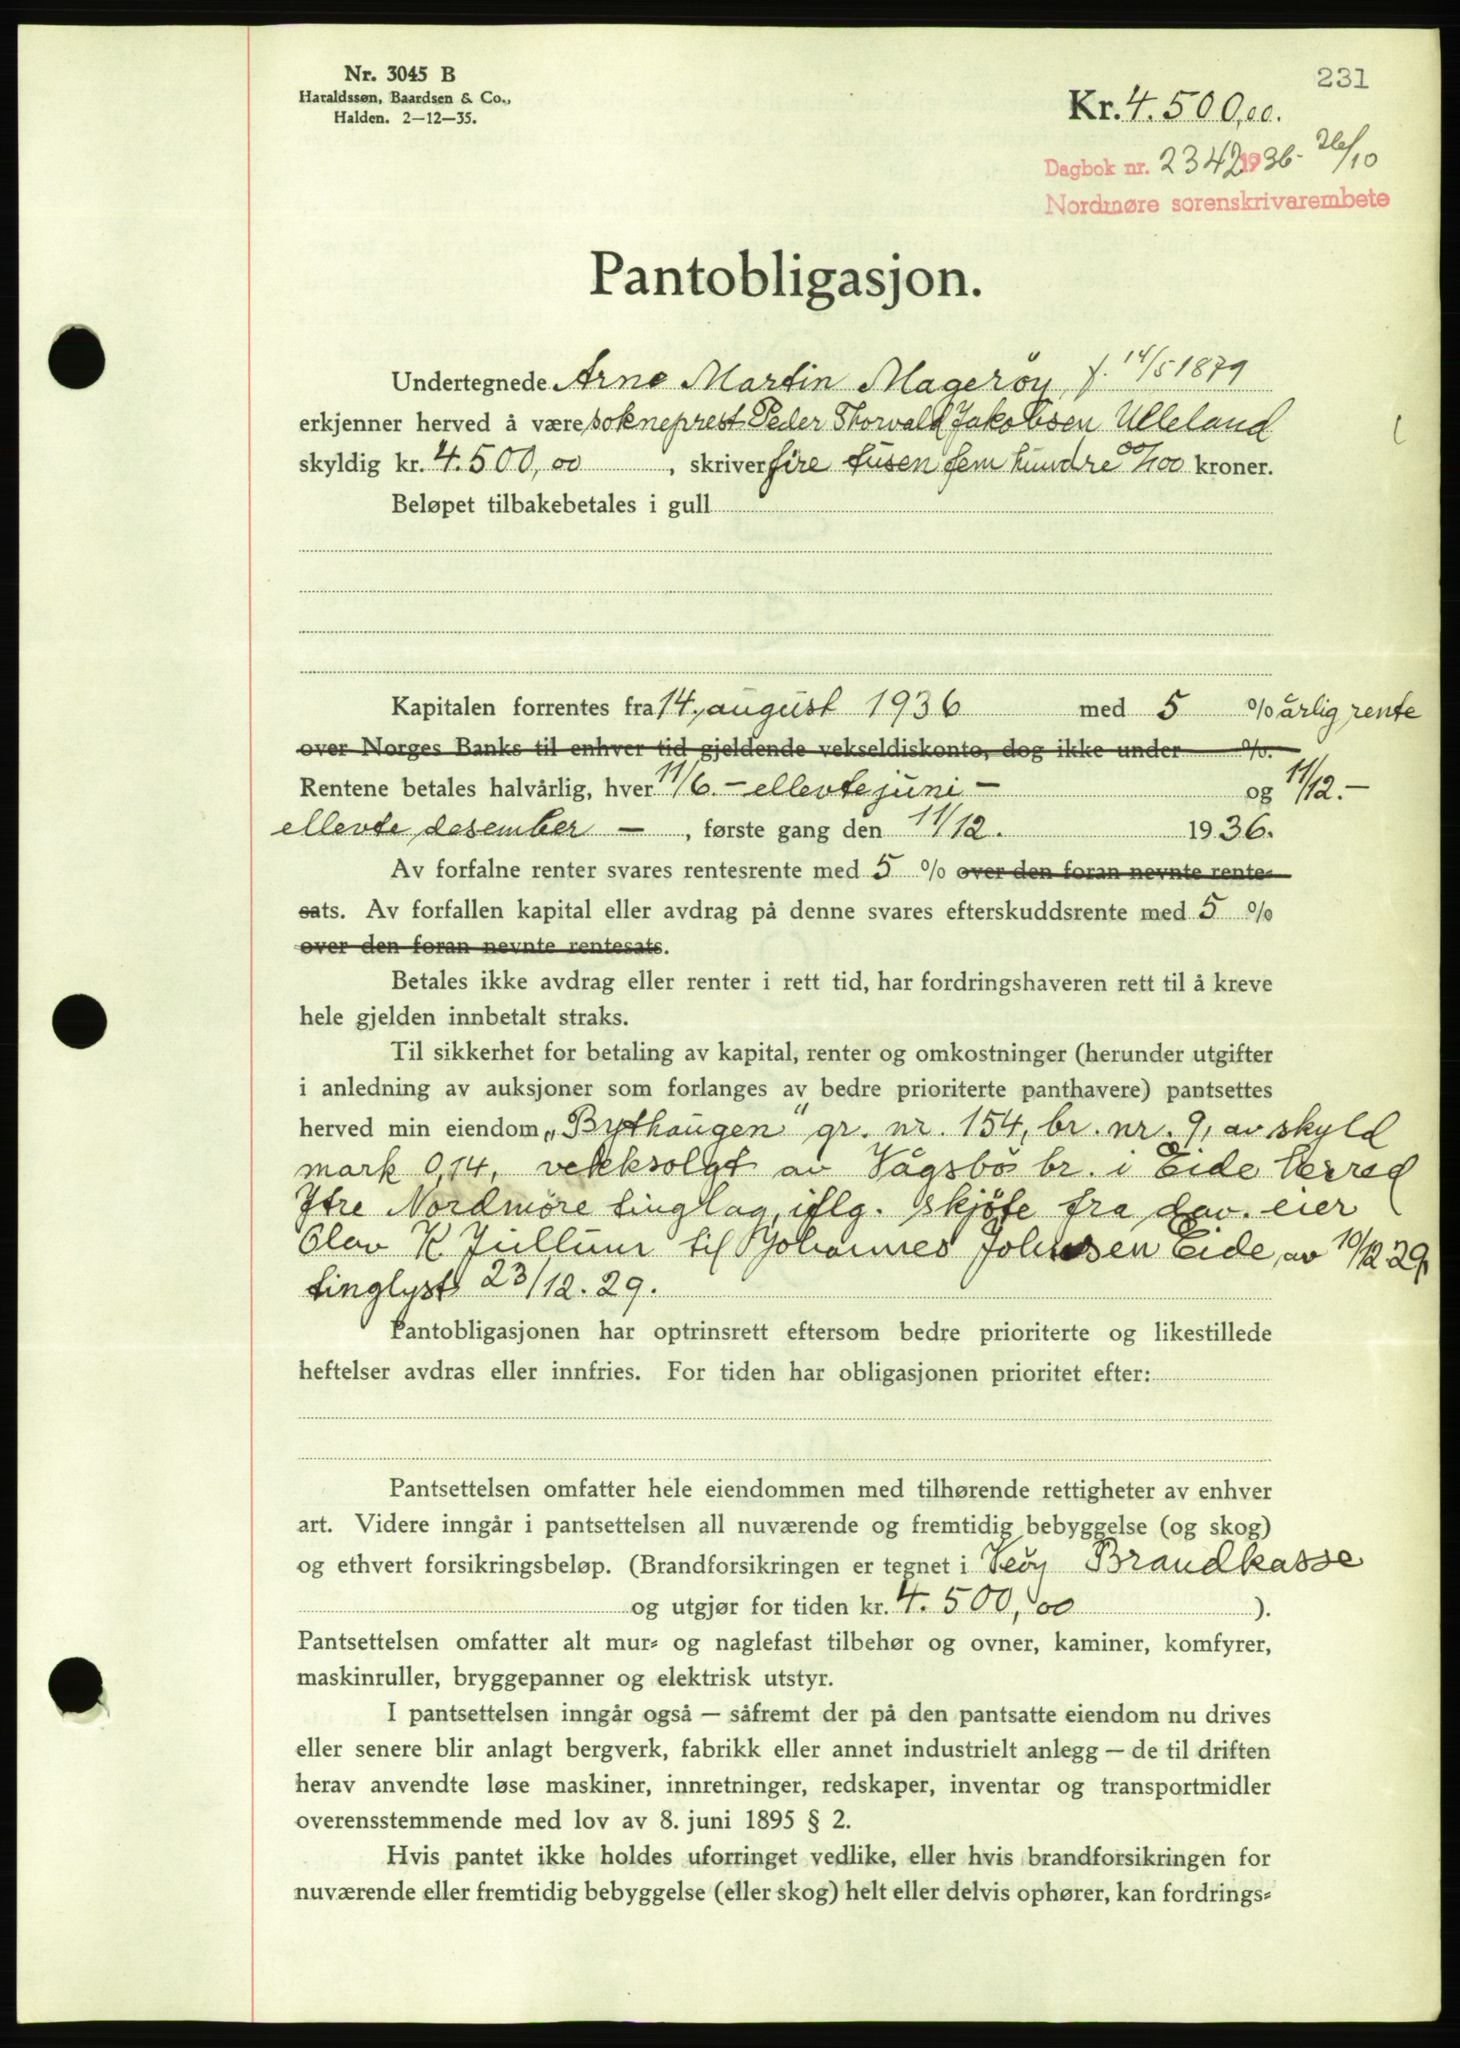 Nr. 3045 B
Haraldssøn, Baardsen & Co.,
Halden. 2—12—35.
231
Kr. 4.500,00.
Dagbok nr. 2342 1936- 26/10
Nordmøre sorenskrivarembete
Pantobligasjon.
Undertegnede Arne Martin Magerøy, f. 14/5 1879
erkjenner herved å være sokneprest Peder Thorvald Jakobsen Ulleland
skyldig kr. 4.500,00 , skriver fire tusen fem hundre 00/100 kroner.
Beløpet tilbakebetales i gull
Kapitalen forrentes fra 14. august 1936 med 5 % årlig rente
over Norges Banks til enhver tid gjeldende vekseldiskonto, dog ikke under %.
Rentene betales halvårlig, hver 11/6. – ellevte juni – og 11/12. –
ellevte desember – , første gang den 11/12. 1936.
Av forfalne renter svares rentesrente med 5 % over den foran nevnte rente-
sats. Av forfallen kapital eller avdrag på denne svares efterskuddsrente med 5 %
over den foran nevnte rentesats.
Betales ikke avdrag eller renter i rett tid, har fordringshaveren rett til å kreve
hele gjelden innbetalt straks.
Til sikkerhet for betaling av kapital, renter og omkostninger (herunder utgifter
i anledning av auksjoner som forlanges av bedre prioriterte panthavere) pantsettes
herved min eiendom „Bythaugen" gr. nr. 154, br. nr. 9, av skyld
mark 0,14, vekksolgt av Vågsbø br. i Eide herred
Ytre Nordmøre tinglag, iflg. skjøte fra dav. eier
Olav K Jullum til Johannes Johnsen Eide, av 10/12.29,
tinglyst 23/12.29.
Pantobligasjonen har optrinsrett eftersom bedre prioriterte og likestillede
heftelser avdras eller innfries. For tiden har obligasjonen prioritet efter:
Pantsettelsen omfatter hele eiendommen med tilhørende rettigheter av enhver
art. Videre inngår i pantsettelsen all nuværende og fremtidig bebyggelse (og skog)
og ethvert forsikringsbeløp. (Brandforsikringen er tegnet i Veøy Brandkasse
og utgjør for tiden kr. 4.500,00 ).
Pantsettelsen omfatter alt mur- og naglefast tilbehør og ovner, kaminer, komfyrer,
maskinruller, bryggepanner og elektrisk utstyr.
I pantsettelsen inngår også — såfremt der på den pantsatte eiendom nu drives
eller senere blir anlagt bergverk, fabrikk eller annet industrielt anlegg — de til driften
herav anvendte løse maskiner, innretninger, redskaper, inventar og transportmidler
overensstemmende med lov av 8. juni 1895 § 2.
Hvis pantet ikke holdes uforringet vedlike, eller hvis brandforsikringen for
nuværende eller fremtidig bebyggelse (eller skog) helt eller delvis ophører, kan fordrings-